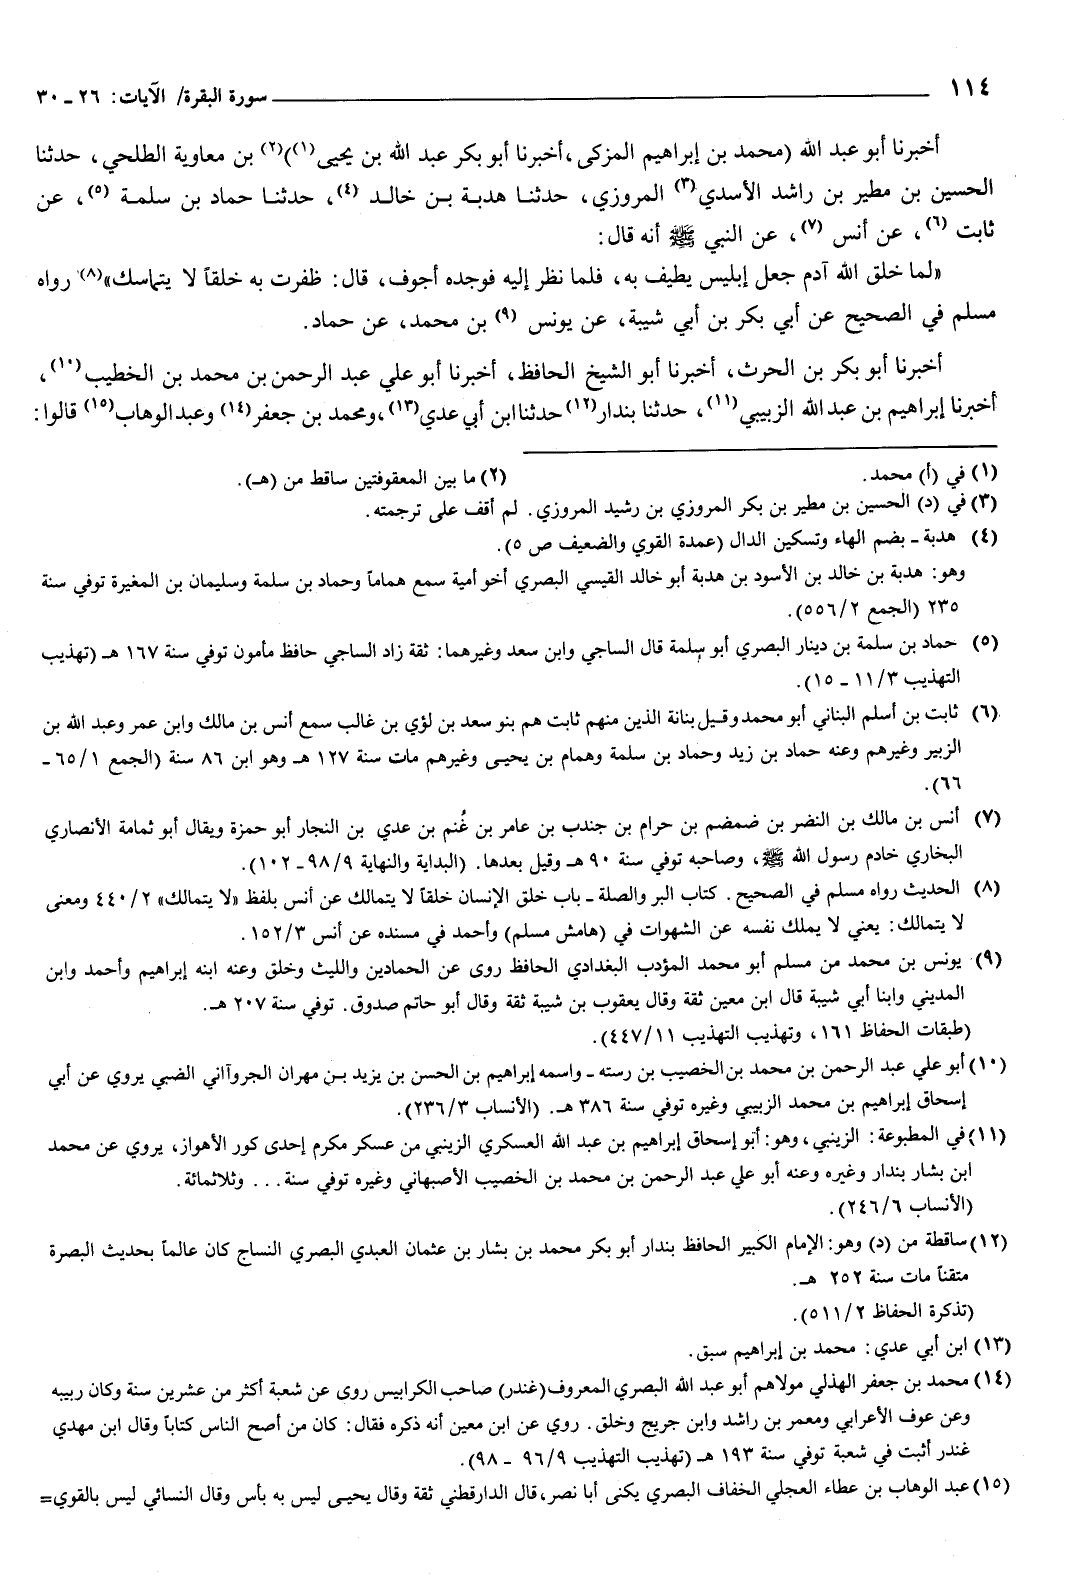 ١١٤ ــــــ سورة البقرة/ الآيات: ٢٦ ـ ٣٠
أخبرنا أبو عبد الله (محمد بن إبراهيم المزكى، أخبرنا أبو بكر عبد الله بن يحيى(١))(٢) بن معاوية الطلحي، حدثنا
الحسين بن مطير بن راشد الأسدي(٣) المروزي، حدثنا هدبة بن خالد (٤)، حدثنا حماد بن سلمة (٥)، عن
ثابت (٦)، عن أنس (٧)، عن النبي ﷺ أنه قال:
«لما خلق الله آدم جعل إبليس يطيف به، فلما نظر إليه فوجده أجوف، قال: ظفرت به خلقاً لا يتماسك»(٨) رواه
مسلم في الصحيح عن أبي بكر بن أبي شيبة، عن يونس (٩) بن محمد، عن حماد.
أخبرنا أبو بكر بن الحرث، أخبرنا أبو الشيخ الحافظ، أخبرنا أبو علي عبد الرحمن بن محمد بن الخطيب(١٠)،
أخبرنا إبراهيم بن عبد الله الزبيبي(١١)، حدثنا بندار(١٢) حدثنا ابن أبي عدي(١٣)، ومحمد بن جعفر(١٤) وعبد الوهاب(١٥) قالوا:
(١) في (أ) محمد. (٢) ما بين المعقوفتين ساقط من (هـ).
(٣) في (د) الحسين بن مطير بن بكر المروزي بن رشيد المروزي. لم أقف على ترجمته.
(٤) هدبة ـ بضم الهاء وتسكين الدال (عمدة القوي والضعيف ص ٥).
وهو: هدبة بن خالد بن الأسود بن هدبة أبو خالد القيسي البصري أخو أمية سمع هماماً وحماد بن سلمة وسليمان بن المغيرة توفي سنة
٢٣٥ (الجمع ٢/ ٥٥٦).
(٥) حماد بن سلمة بن دينار البصري أبو سلمة قال الساجي وابن سعد وغيرهما: ثقة زاد الساجي حافظ مأمون توفي سنة ١٦٧ هـ (تهذيب
التهذيب ٣/ ١١ ـ ١٥).
(٦) ثابت بن أسلم البناني أبو محمد وقيل بنانة الذين منهم ثابت هم بنو سعد بن لؤي بن غالب سمع أنس بن مالك وابن عمر وعبد الله بن
الزبير وغيرهم وعنه حماد بن زيد وحماد بن سلمة وهمام بن يحيى وغيرهم مات سنة ١٢٧ هـ وهو ابن ٨٦ سنة (الجمع ١/ ٦٥ ـ
٦٦).
(٧) أنس بن مالك بن النضر بن ضمضم بن حرام بن جندب بن عامر بن غُنم بن عدي بن النجار أبو حمزة ويقال أبو ثمامة الأنصاري
البخاري خادم رسول الله ﷺ، وصاحبه توفي سنة ٩٠ هـ وقيل بعدها. (البداية والنهاية ٩/ ٩٨ ـ ١٠٢).
(٨) الحديث رواه مسلم في الصحيح. كتاب البر والصلة ـ باب خلق الإنسان خلقاً لا يتمالك عن أنس بلفظ «لا يتمالك» ٢/ ٤٤٠ ومعنى
لا يتمالك: يعني لا يملك نفسه عن الشهوات في (هامش مسلم) وأحمد في مسنده عن أنس ٣/ ١٥٢.
(٩) يونس بن محمد من مسلم أبو محمد المؤدب البغدادي الحافظ روى عن الحمادين والليث وخلق وعنه ابنه إبراهيم وأحمد وابن
المديني وابنا أبي شيبة قال ابن معين ثقة وقال يعقوب بن شيبة ثقة وقال أبو حاتم صدوق. توفي سنة ٢٠٧ هـ.
(طبقات الحفاظ ١٦١، وتهذيب التهذيب ١١/ ٤٤٧).
(١٠) أبو علي عبد الرحمن بن محمد بن الخصيب بن رسته ـ واسمه إبراهيم بن الحسن بن يزيد بن مهران الجروآاني الضبي يروي عن أبي
إسحاق إبراهيم بن محمد الزبيبي وغيره توفي سنة ٣٨٦ هـ. (الأنساب ٣/ ٢٣٦).
(١١) في المطبوعة: الزينبي، وهو: أبو إسحاق إبراهيم بن عبد الله العسكري الزينبي من عسكر مكرم إحدى كور الأهواز، يروي عن محمد
ابن بشار بندار وغيره وعنه أبو علي عبد الرحمن بن محمد بن الخصيب الأصبهاني وغيره توفي سنة . . . وثلاثمائة.
(الأنساب ٦/ ٢٤٦).
(١٢) ساقطة من (د) وهو: الإمام الكبير الحافظ بندار أبو بكر محمد بن بشار بن عثمان العبدي البصري النساج كان عالماً بحديث البصرة
متقناً مات سنة ٢٥٢ هـ.
(تذكرة الحفاظ ٢/ ٥١١).
(١٣) ابن أبي عدي: محمد بن إبراهيم سبق.
(١٤) محمد بن جعفر الهذلي مولاهم أبو عبد الله البصري المعروف (غندر) صاحب الكرابيس روى عن شعبة أكثر من عشرين سنة وكان ربيبه
وعن عوف الأعرابي ومعمر بن راشد وابن جريج وخلق. روي عن ابن معين أنه ذكره فقال: كان من أصح الناس كتاباً وقال ابن مهدي
غندر أثبت في شعبة توفي سنة ١٩٣ هـ (تهذيب التهذيب ٩/ ٩٦ ـ ٩٨).
(١٥) عبد الوهاب بن عطاء العجلي الخفاف البصري يكنى أبا نصر، قال الدارقطني ثقة وقال يحيى ليس به بأس وقال النسائي ليس بالقوي=